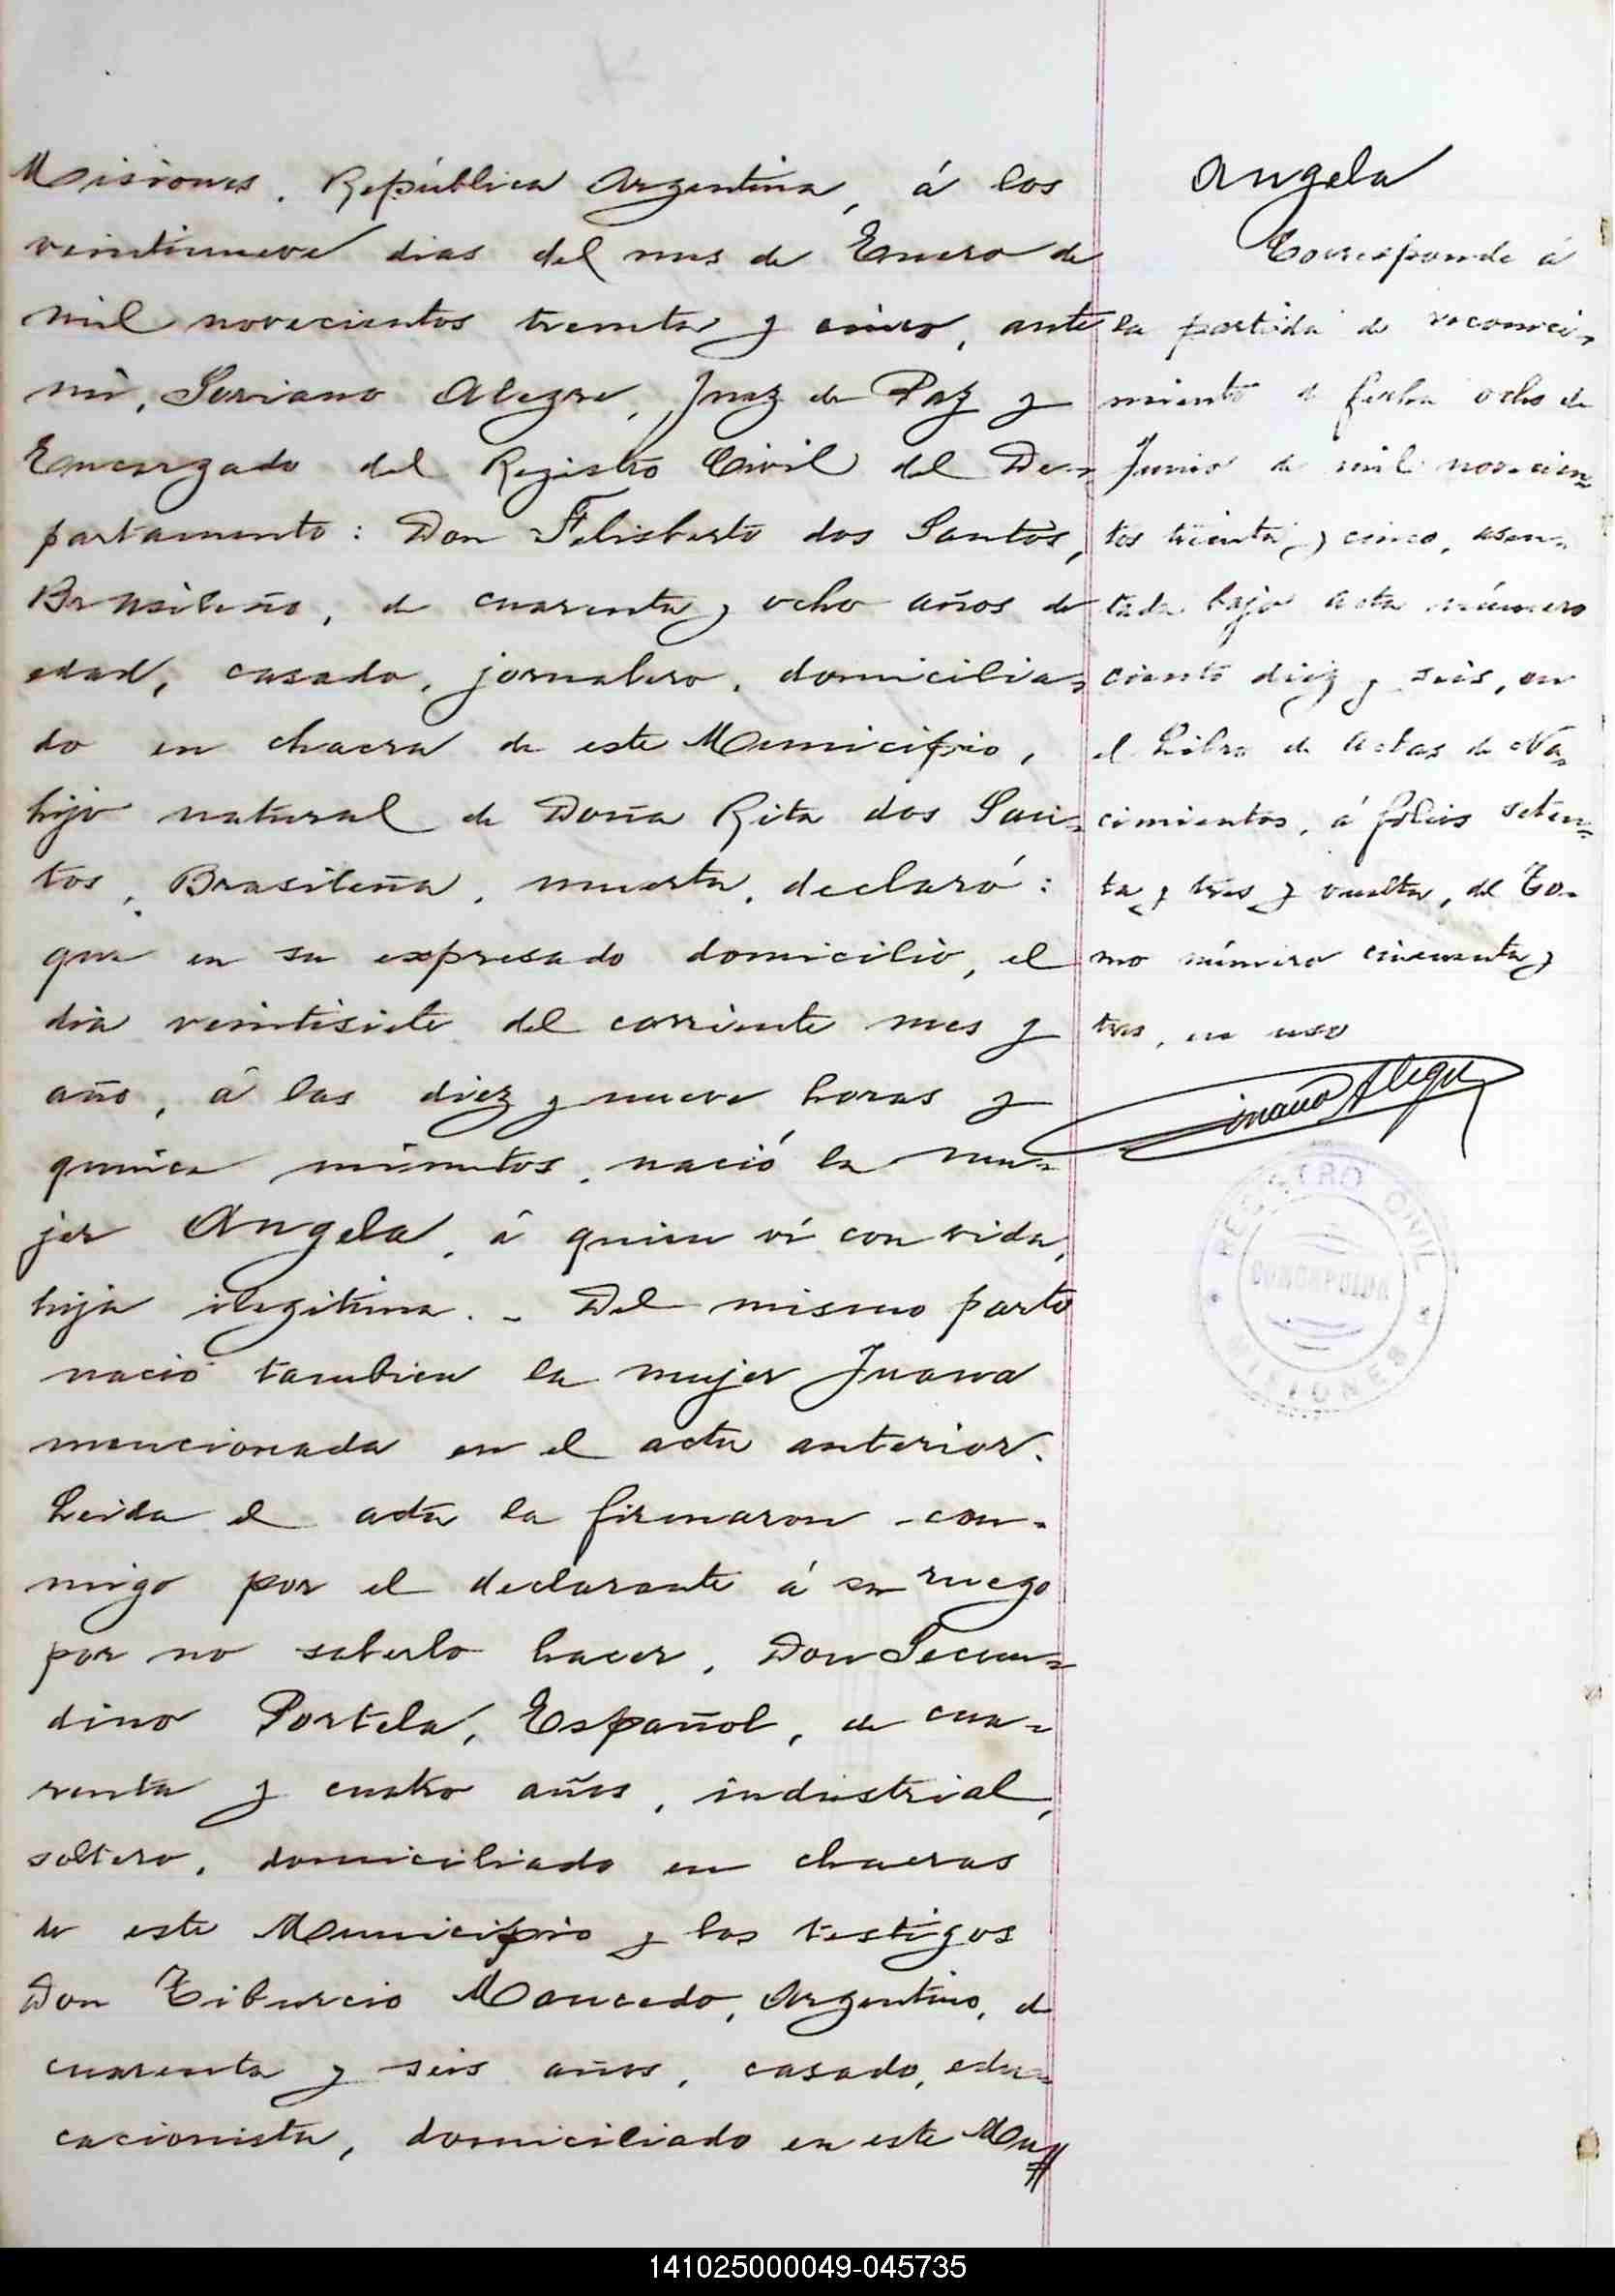 Misiones. República Argentina, á los
veintinueve dias del mes de Enero de
mil novecientos treinta y cinco, ante
mi, Soriano Alegre, Juez de Paz y
Encargado del Registro Civil del De=
partamento: Don Felisberto dos Santos,
Brasileño, de cuarenta y ocho años de
edad, casado, jornalero, domicilia=
do en chacra de este Municipio,
hijo natural de Doña Rita dos San=
tos, Brasileña, muerta, declaró:
que en su expresado domicilio, el
dia veintisiete del corriente mes y
año, á las diez y nueve horas y
quince minutos, nació la mu=
jer Angela, á quien ví con vida,
hija ilegitima. - Del mismo parto
nació tambien la mujer Juana
mencionada en el acta anterior.
Leida el acta la firmaron con=
migo por el declarante á su ruego
por no saberlo hacer, Don Secun=
dino Portela, Español, de cua=
renta y cuatro años, industrial,
soltero, domiciliado en chacras
de este Municipio y los testigos
Don Tiburcio Moncedo, Argentino, de
cuarenta y seis años, casado, edu=
cacionista, domiciliado en este Mu//
Angela
Corresponde á
la partida de reconoci=
miento de fecha ocho de
Junio de mil novecien=
tos treinta y cinco, asen=
tada bajo acta número
ciento diez y seis, en
el Libro de Actas de Na=
cimientos, á folios seten=
ta y tres y vuelta, del To=
mo número cincuenta y
tres, en uso
REGISTRO CIVIL
CONCEPCION
MISIONES
141025000049-045735